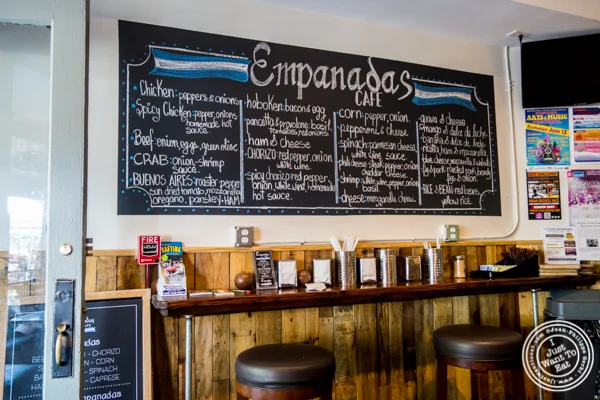 Empanadas
CAFE
Chicken: peppers & onions
Spicy Chicken: pepper, onions
homemade hot
sauce.
Beef: onion, eggs, green olive
CRAB: onion, shrimp
sauce
BUENOS AIRES: roaster pepper
sun dried tomato, mozzarella
oregano, parsley & HAM
hoboken: bacon & egg
pancetta & provolone: basil,
tomatoes, red onions
ham & cheese
CHORIZO: red pepper, onion
white wine.
spicy chorizo: red pepper,
onion, white wine, homemade
hot sauce.
corn: pepper, onion.
pepperoni & cheese
spinach: parmesan cheese
white wing sauce
philli cheese steak: pepper, onion
cheddar cheese
shrimp: white wine, pepper, onion
basil
cheese: mozzarella, chewd
guava & cheese
Mango & dulce de leche
banana & dulce de leche
figs & onion
RICE & BEAN: red beans,
yellow rice
FIRE
ARTS & MUSIC
Empanadas
- CHORIZO
- CORN
- SPINACH
- CAPRESE
I Just
Want To
Eat